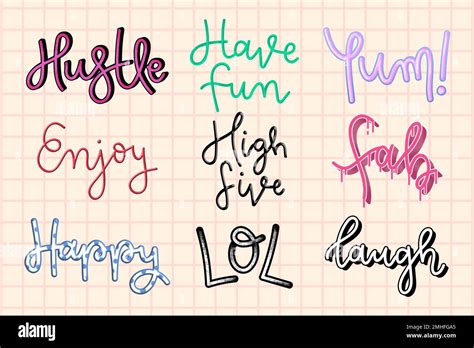 Hustle
Have
fun
Yum!
Enjoy
High
five
fab
Happy
LOL
laugh
alamy
Image ID: 2MHFGA5
www.alamy.com